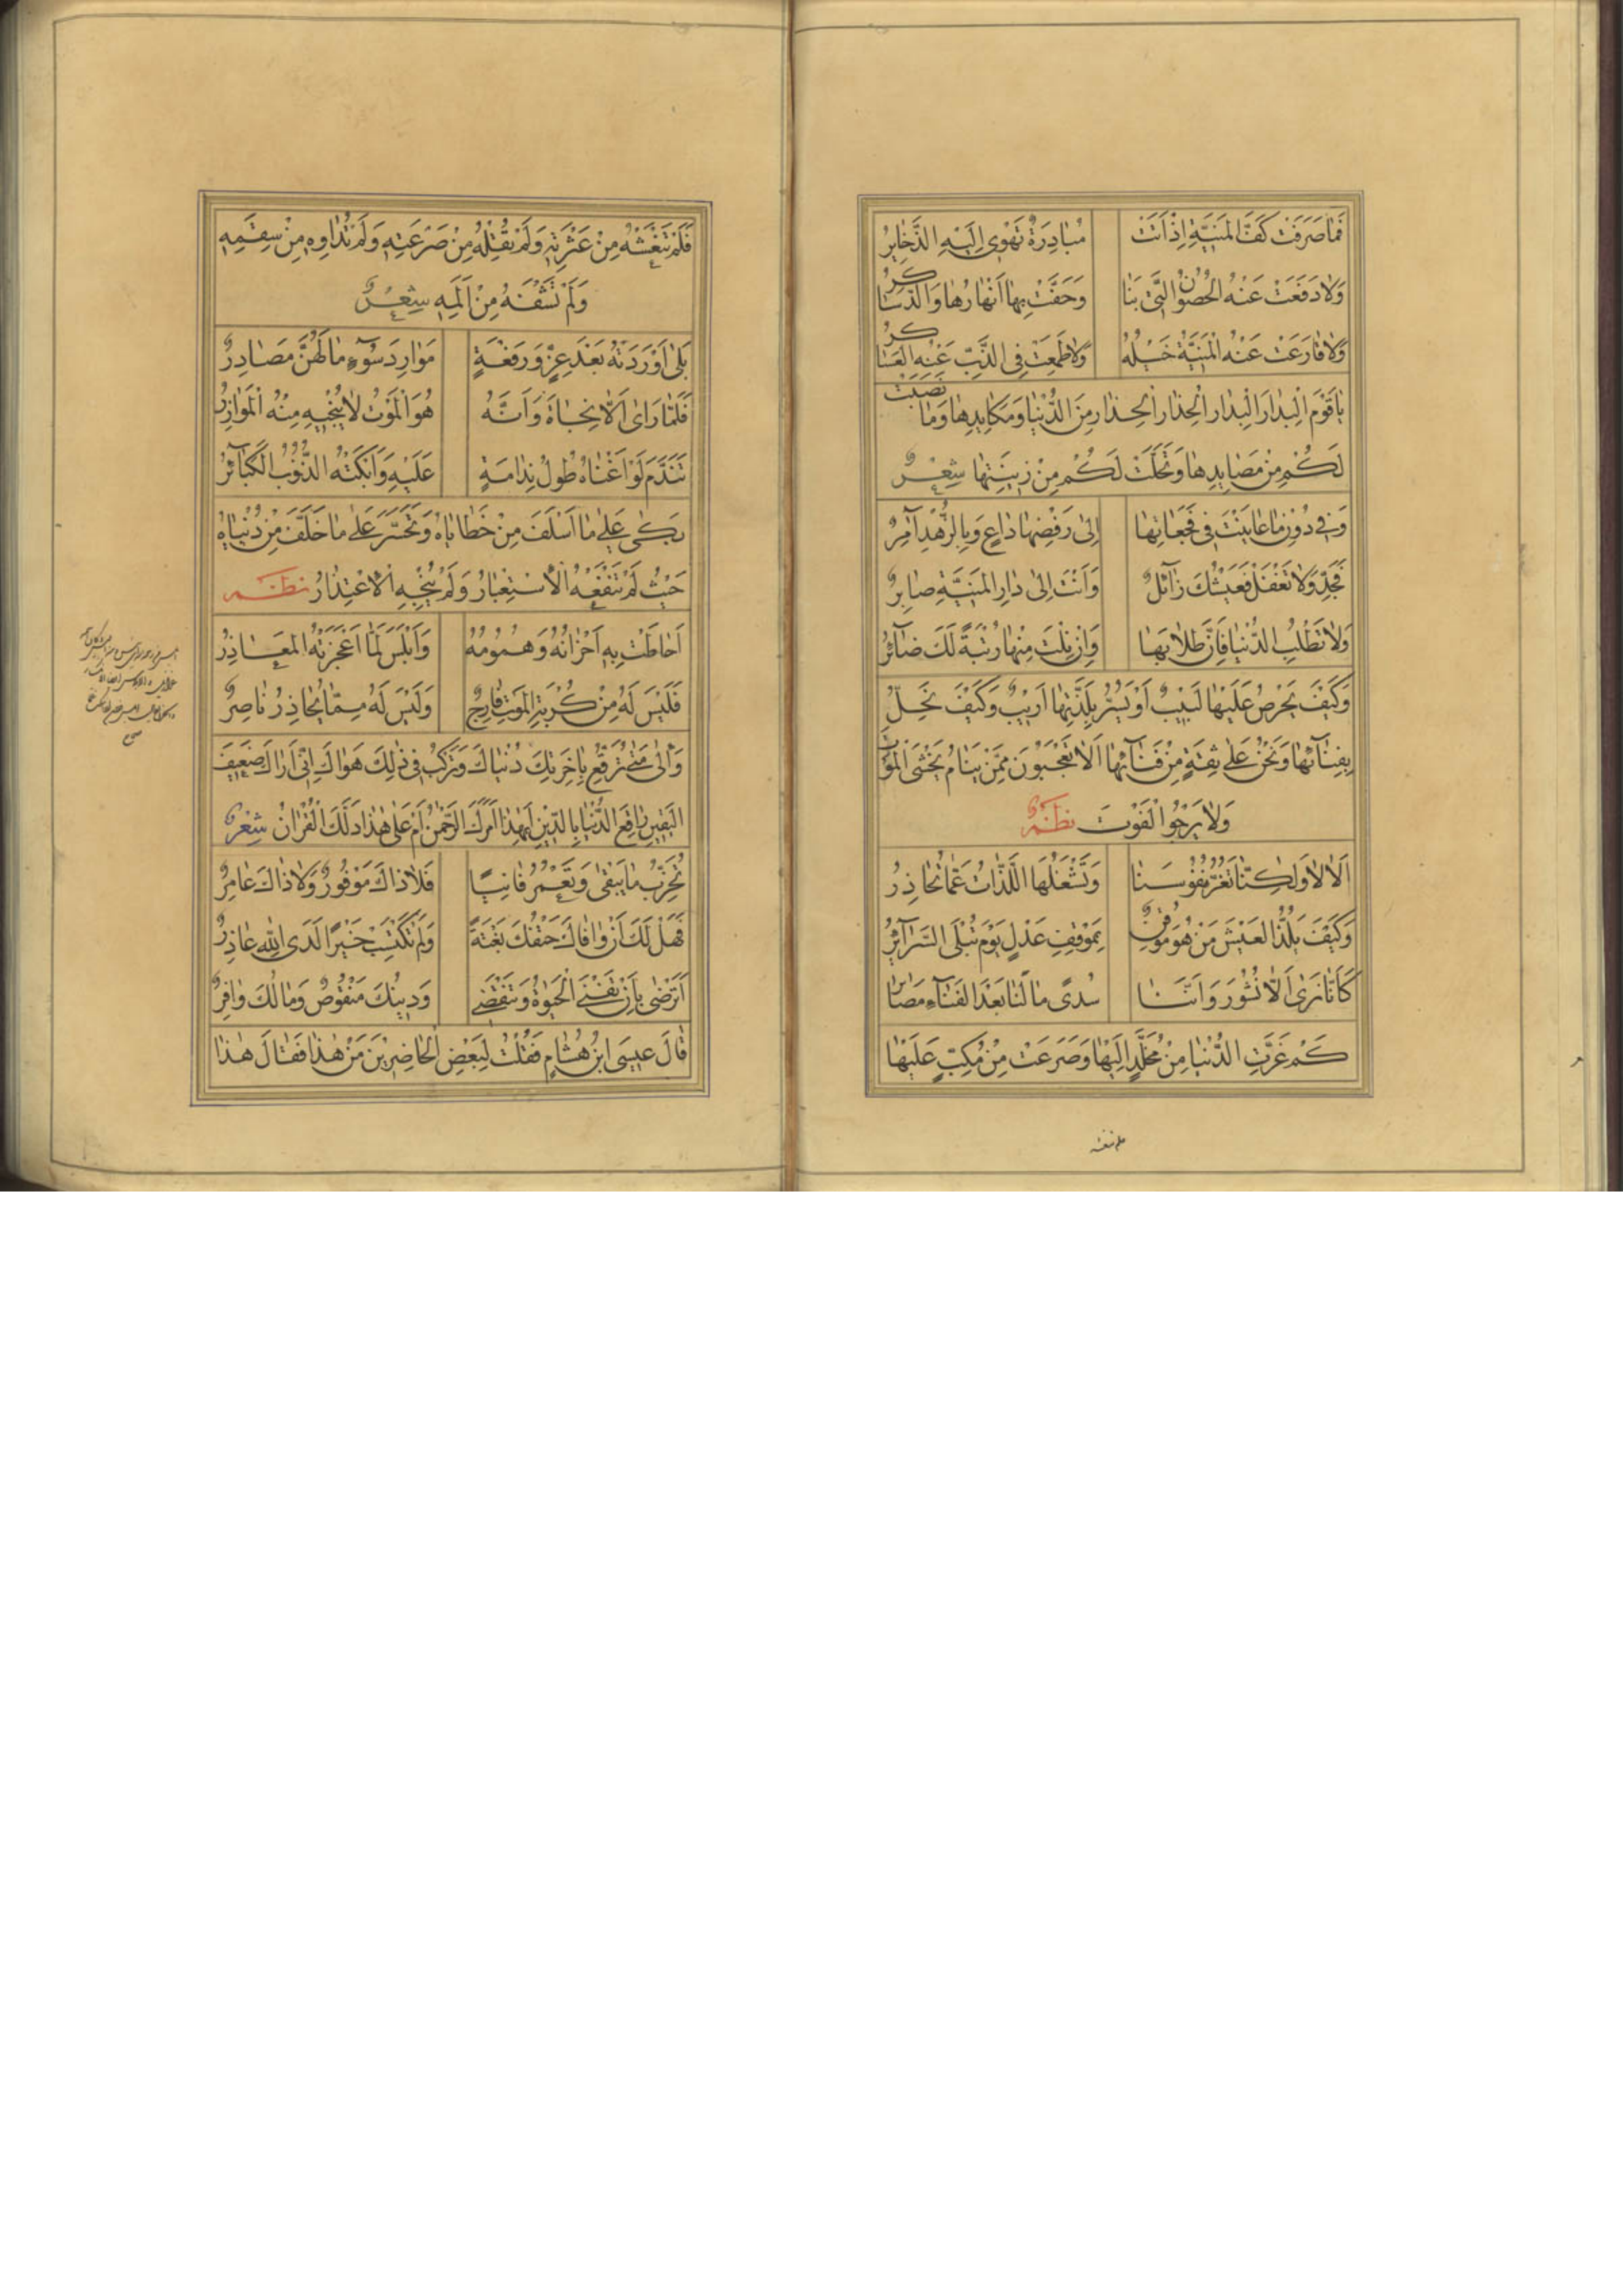 فَمَا صَرَفَتْ كَفَّ الْمَنِيَّةِ إِذْ أَتَتْ مُبَادِرَةً تَهْوِي إِلَيْهِ الذَّخَايِرُ
وَلَا دَفَعَتْ عَنْهُ الْحُصُونُ الَّتِي بَنَا وَحَفَّتْ بِهَا أَنْهَارُهَا وَالدَّسَاكِرُ
وَلَا قَارَعَتْ عَنْهُ الْمَنِيَّةَ خَيْلُهُ وَلَا طَمِعَتْ فِي الذَّبِّ عَنْهُ الْعَسَاكِرُ
يَا قَوْمِ الْبِدَارَ الْبِدَارَ الْحِذَارَ الْحِذَارَ مِنَ الدُّنْيَا وَمَكَايِدِهَا وَمَا نَصَبَتْ
لَكُمْ مِنْ مَصَايِدِهَا وَتَحَلَّتْ لَكُمْ مِنْ زِينَتِهَا شِعْرٌ
وَفِي دُونِ مَا عَايَنْتَ فِي فَجَعَاتِهَا إِلَى رَفْضِهَا دَاعٍ وَبِالزُّهْدِ آمِرٌ
فَجِدَّ وَلَا تَغْفَلْ فَعَيْشُكَ زَآئِلٌ وَأَنْتَ إِلَى دَارِ الْمَنِيَّةِ صَايِرٌ
وَلَا تَطْلُبِ الدُّنْيَا فَإِنَّ طِلَابَهَا وَإِنْ نِلْتَ مِنْهَا رُتْبَةً لَكَ ضَآئِرٌ
وَكَيْفَ يَحْرِصُ عَلَيْهَا لَبِيبٌ أَوْ يُسَرُّ بِلَذَّتِهَا أَرِيبٌ وَكَيْفَ نَحِلُّ
بِفِنَآئِهَا وَنَحْنُ عَلَى ثِقَةٍ مِنْ فَنَآئِهَا أَلَا تَعْجَبُونَ مِمَّنْ يَنَامُ يَخْشَى الْمَوْتَ
وَلَا يَرْجُو الْفَوْتَ نظمٌ
أَلَا لَا وَلَكِنَّا نَغُرُّ نُفُوسَنَا وَتَشْغَلُهَا اللَّذَّاتُ عَمَّا نُحَاذِرُ
وَكَيْفَ يَلُذُّ الْعَيْشَ مَنْ هُوَ مُوقِنٌ بِمَوْقِفِ عَدْلٍ يَوْمَ تُبْلَى السَّرَآئِرُ
كَأَنَّا نَرَى أَلَّا نُشُورَ وَأَنَّنَا سُدًى مَا لَنَا بَعْدَ الْفَنَآءِ مَصَايِرُ
كَمْ غَرَّتِ الدُّنْيَا مِنْ مُخَلَّدٍ إِلَيْهَا وَصَرَعَتْ مِنْ مُكِبٍّ عَلَيْهَا
فَلَمْ تَنْعَشْهُ مِنْ عَثْرَتِهِ وَلَمْ تُقِلْهُ مِنْ صَرْعَتِهِ وَلَمْ تُدَاوِهِ مِنْ سِقَمِهِ
وَلَمْ تَشْفِهُ مِنْ أَلَمِهِ شِعْرٌ
بَلَى أَوْرَدَتْهُ بَعْدَ عِزٍّ وَرِفْعَةٍ مَوَارِدَ سُوءٍ مَا لَهُنَّ مَصَادِرُ
فَلَمَّا رَأَى أَلَّا نَجَاةَ وَأَنَّهُ هُوَ الْمَوْتُ لَا يُنْجِيهِ مِنْهُ الْمَوَازِرُ
تَنَدَّمَ لَوْ أَغْنَاهُ طُولُ نِدَامَةٍ عَلَيْهِ وَأَبْكَتْهُ الذُّنُوبُ الْكَبَآئِرُ
بَكَى عَلَى مَا أَسْلَفَ مِنْ خَطَايَاهُ وَتَحَسَّرَ عَلَى مَا خَلَّفَ مِنْ دُنْيَاهُ
حَيْثُ لَمْ يَنْفَعْهُ الْاِسْتِعْبَارُ وَلَمْ يُنْجِهِ الْاِعْتِذَارُ نظم
أَحَاطَتْ بِهِ أَحْزَانُهُ وَهُمُومُهُ وَأَبْلَسَ لَمَّا أَعْجَزَتْهُ الْمَعَاذِرُ
فَلَيْسَ لَهُ مِنْ كُرْبَةِ الْمَوْتِ فَارِجٌ وَلَيْسَ لَهُ مِمَّا يُحَاذِرُ نَاصِرٌ
وَإِلَى مَتَى تَرْقَعُ بِآخِرَتِكَ دُنْيَاكَ وَتَرْكَبُ فِي ذَلِكَ هَوَاكَ إِنِّي أَرَاكَ ضَعِيفَ
الْيَقِينِ يَا رَاقِعَ الدُّنْيَا بِالدِّينِ أَبِهَذَا أَمَرَكَ الرَّحْمَنُ أَمْ عَلَى هَذَا دَلَّكَ الْقُرْآنُ شِعْرٌ
تُخَرِّبُ مَا يَبْقَى وَتَعْمُرُ فَانِيًا فَلَا ذَاكَ مَوْفُورٌ وَلَا ذَاكَ عَامِرٌ
فَهَلْ لَكَ إِنْ وَافَاكَ حَتْفُكَ بَغْتَةً وَلَمْ تَكْتَسِبْ خَيْرًا لَدَى اللَّهِ عَاذِرٌ
أَتَرْضَى بِأَنْ تَفْنَى الْحَيَوةُ وَتَنْقَضِي وَدِينُكَ مَنْقُوصٌ وَمَالُكَ وَافِرٌ
قَالَ عِيسَى ابْنُ هُشَامٍ فَقُلْتُ لِبَعْضِ الْحَاضِرِينَ مَنْ هَذَا فَقَالَ هَذَا